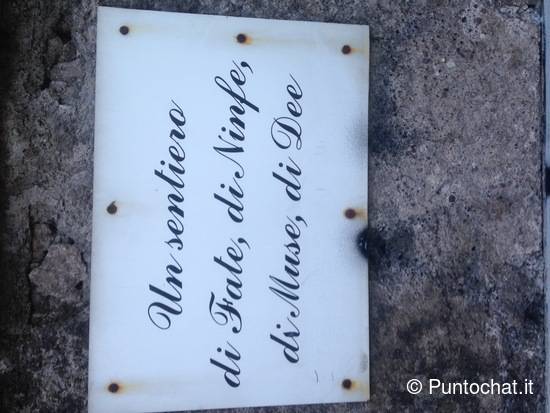 Un sentiero
di Fate, di Ninfe,
di Muse, di Dee
© Puntochat.it